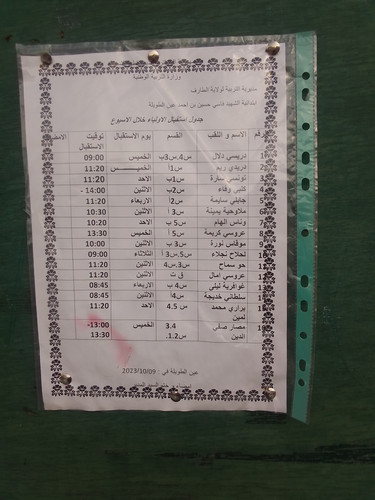 وزارة التربية الوطنية
مديرية التربية لولاية الطارف
ابتدائية الشهيد قاسي حسين بن احمد عين الطويلة
جدول استقبال الاولياء خلال الاسبوع
رقم الاسم و اللقب القسم يوم الاستقبال توقيت الاستقبال الامضاء
1 دريسي دلال س4,س3ب الخميس 09:00
فريدي ريم س1أ الخميس 11:20
تونسي سارة س1ب الاحد 11:20
كلبي وفاء س2ب الاثنين 14:00 -
جابلي سليمة س2أ الاربعاء 11:20
ملاوحية يمينة س3أ الاثنين 10:30
وناس الهام س5 ب الاحد 10:20
عروسي كريمة س5 أ الخميس 13:30
موفاس نورة س3 ب الاثنين 10:00
لحلاح نجلاء س5,س3أ الثلاثاء 09:00
حو سماح س3,س4 الاثنين 11:20
عروسي امال ق ت الاثنين 11:20
غوافرية ليلى س4 ب الاربعاء 08:45
سلطاني خديجة س4أ الاثنين 08:45
براري محمد لمين س 4.5 الاحد 11:20
مصار صفي الدين 3.4 س1.2. الخميس 13:00- 13:30
عين الطويلة في : 2023/10/09